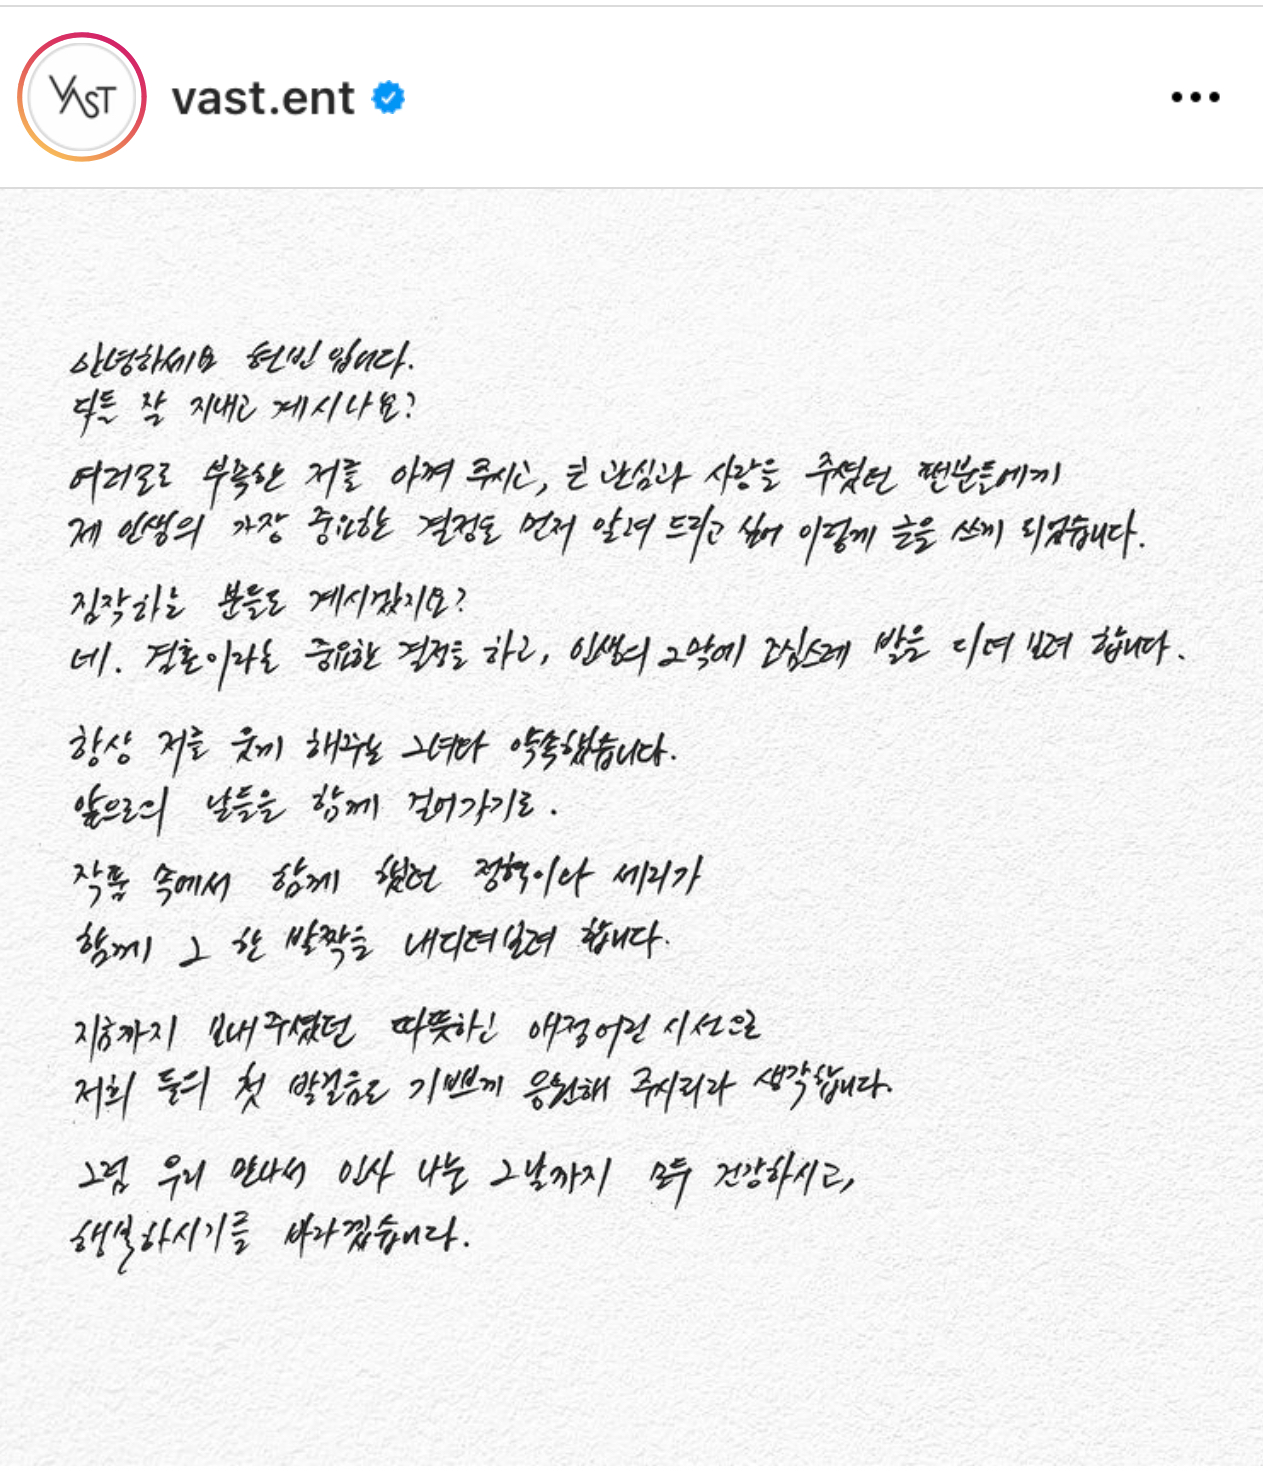 VAST
vast.ent
안녕하세요 현빈입니다.
다들 잘 지내고 계시나요?
여러모로 부족한 저를 아껴 주시고, 큰 관심과 사랑을 주셨던 팬분들에게
제 인생의 가장 중요한 결정을 먼저 알려 드리고 싶어 이렇게 글을 쓰게 되었습니다.
짐작하는 분들도 계시겠지요?
네. 결혼이라는 중요한 결정을 하고, 인생의 2막에 조심스레 발을 디뎌 보려 합니다.
항상 저를 웃게 해주는 그녀와 약속했습니다.
앞으로의 날들을 함께 걸어가기로.
작품 속에서 함께 했던 정혁이와 세리가
함께 그 한 발짝을 내디뎌보려 합니다.
지금까지 보내주셨던 따뜻하고 애정어린 시선으로
저희 둘의 첫 발걸음도 기쁘게 응원해 주시리라 생각합니다.
그럼 우리 만나서 인사 나눌 그날까지 모두 건강하시고,
행복하시기를 바라겠습니다.